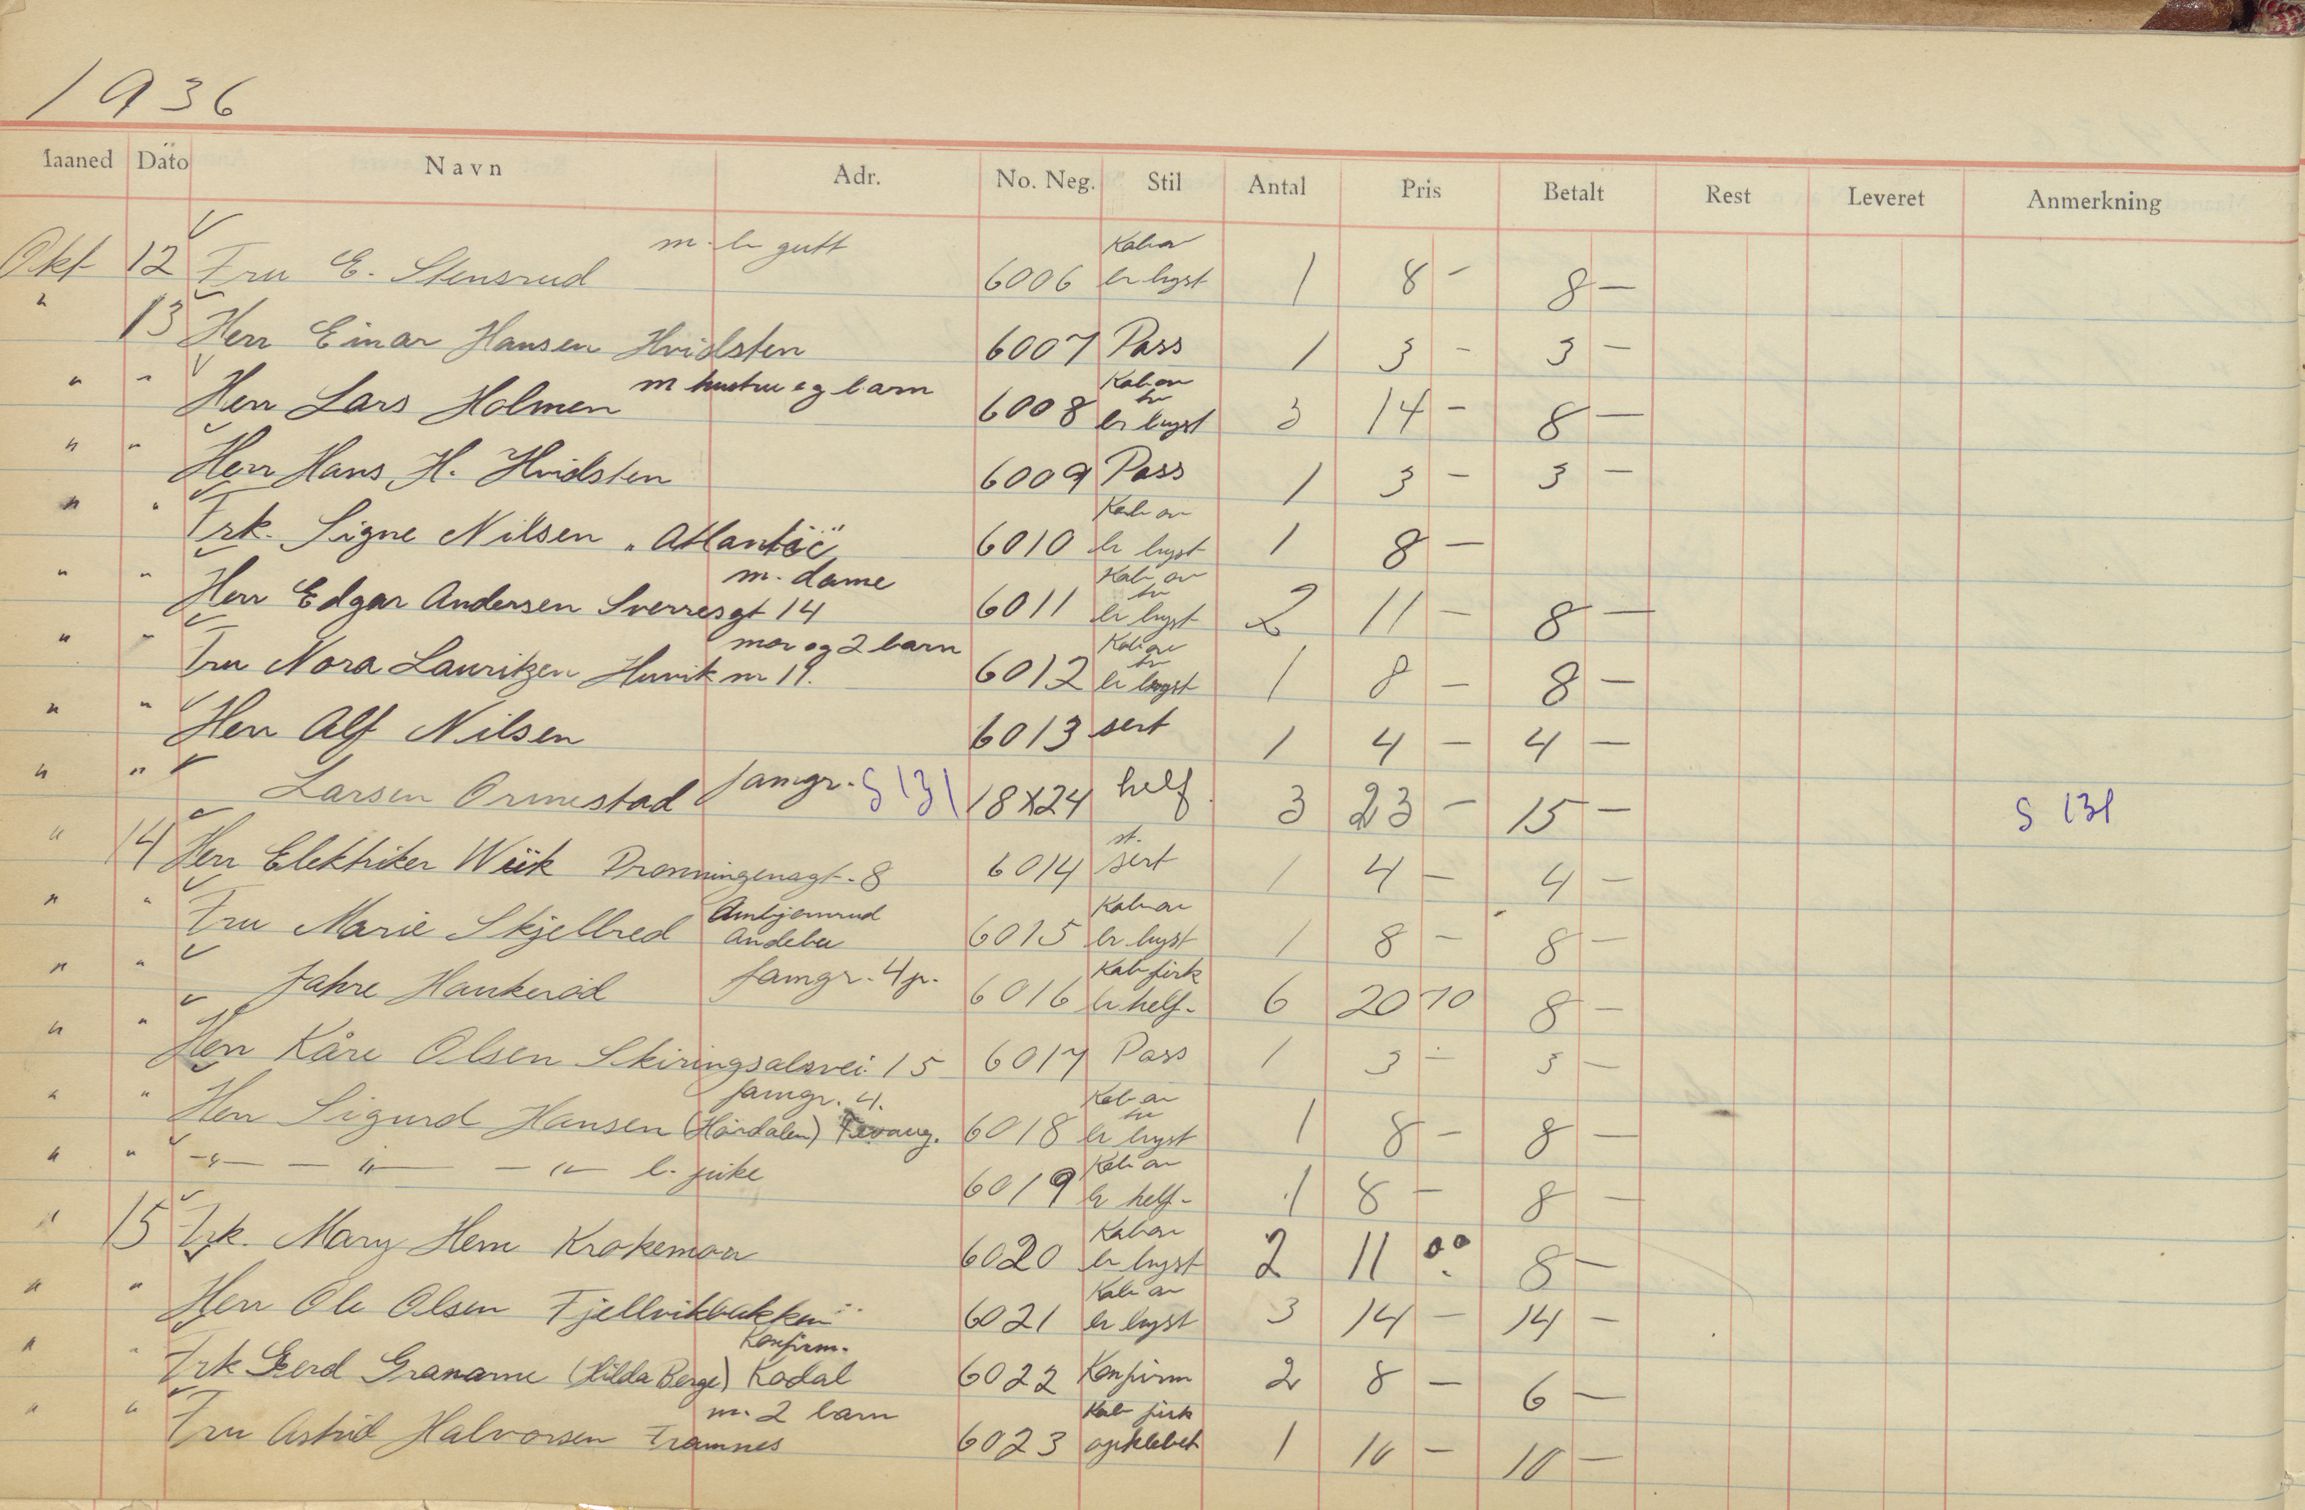 1936
Maaned Dato Navn Adr. No. Neg. Stil Antal Pris Betalt Rest Leveret Anmerkning
Okt 12 Fru E. Stensrud m. l. gutt 6006 Kab av br lyst 1 8 - 8 -
" 13 Herr Einar Hansen Hvidsten 6007 Pass 1 3 - 3 -
" " Herr Lars Holmen m hustru og barn 6008 Kab av br lyst 3 14 - 8 -
" " Herr Hans H. Hvidsten 6009 Pass 1 3 - 3 -
" " Frk. Signe Nilsen "Atlantic" 6010 Kab av br lyst 1 8 -
" " Herr Edgar Andersen Sverresgt 14 m. dame 6011 Kab av br lyst 2 11 - 8 -
" " Fru Nora Lauritzen nr 19. mor og 2 barn 6012 Kab av br lyst 1 8 - 8 -
" " Herr Alf Nilsen 6013 sert 1 4 - 4 -
" " Larsen Ormestad famgr. S 131 18X24 helf. 3 23 - 15 - S 131
" 14 Herr Elektriker Wiik Dronningensgt. 8 6014 st. sert 1 4 - 4 -
" " Fru Marie Skjelbred Andebu 6015 Kab av br lyst 1 8 - 8 -
" " Jahre Haukerød famgr. 4 p. 6016 Kab firk br helf. 6 20 70 8 -
" " Herr Kåre Olsen Skiringsalsvei 15 6017 Pass 1 3 - 3 -
" " Herr Sigurd Hansen (Hårdalen) famgr. 4. 6018 Kab av br lyst 1 8 - 8 -
" " -"- - "- - "- l. pike 6019 Kab av br helf. 1 8 - 8 -
" 15 Frk. Mary Hem Krokemoa 6020 Kab av br lyst 2 11 00 8 -
" " Herr Ole Olsen Fjellvikbakken 6021 Kab av br lyst 3 14 - 14 -
" " Frk Gerd (Hilda Berge) Kodal Konfirm. 6022 Konfirm 2 8 - 6 -
" " Fru Astrid Halvorsen Framnes m. 2 barn 6023 Kab firk opklebet 1 10 - 10 -